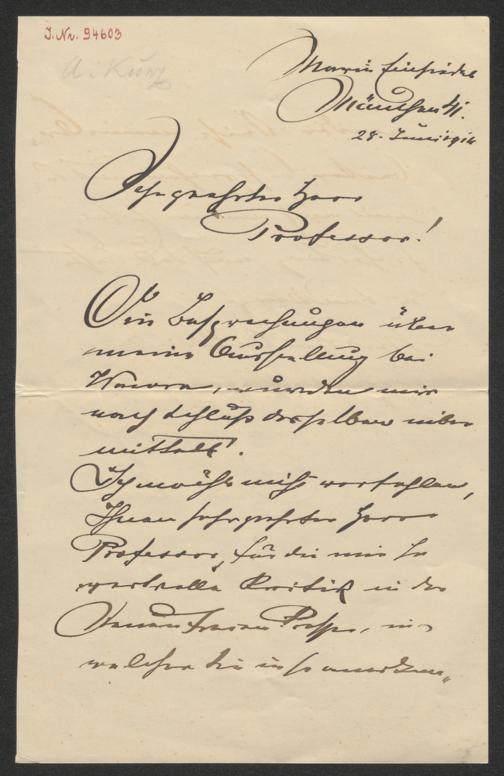 J. Nr. 94603
A. Kunz
Maria Einsiedel
München 41.
28. Juni 1914
Sehr geehrter Herr
Professor!
Die Besprechungen über
meine Ausstellung bei
wurden mir
nach Schluß derselben über
mittelt.
Ich möchte nicht verfehlen,
Ihnen sehr geehrter Herr
Professor, für die mir so
wertvolle Kritik in der
Neuen Freien Presse, in
welcher Sie in so anerken„